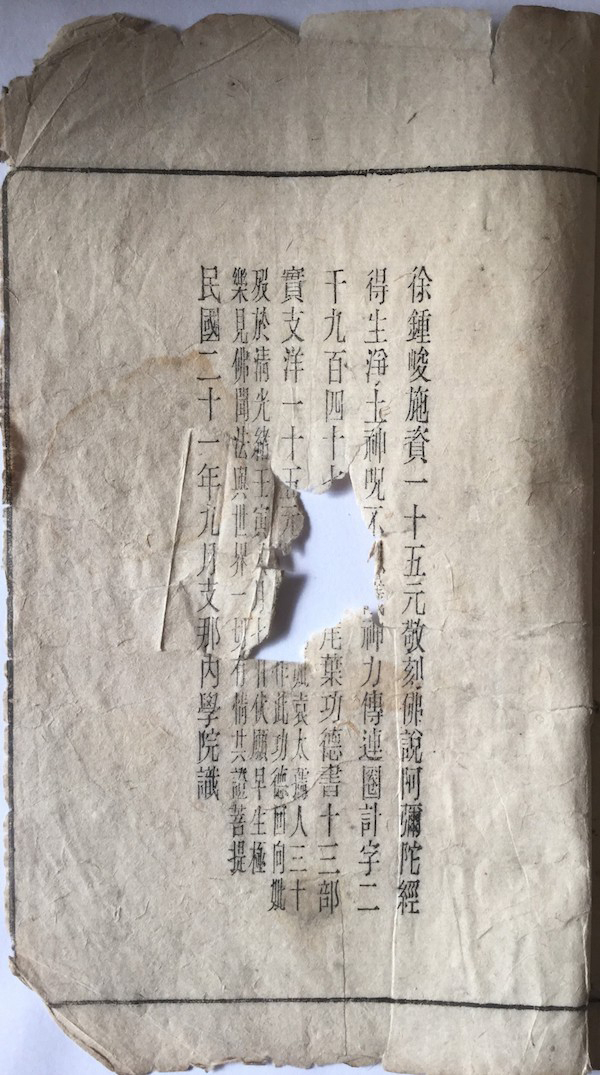 徐鍾峻施資一十五元敬刻佛說阿彌陀經
得生淨土神呪不神力傳連圈計字二
千九百四十七尾葉功德書十三部
實支洋一十五元
妣袁太孺人三十
作此功德回向妣
歿於清光緒壬寅月七日伏願早生極
樂見佛聞法與世界一切有情共證菩提
民國二十一年九月支那內學院識